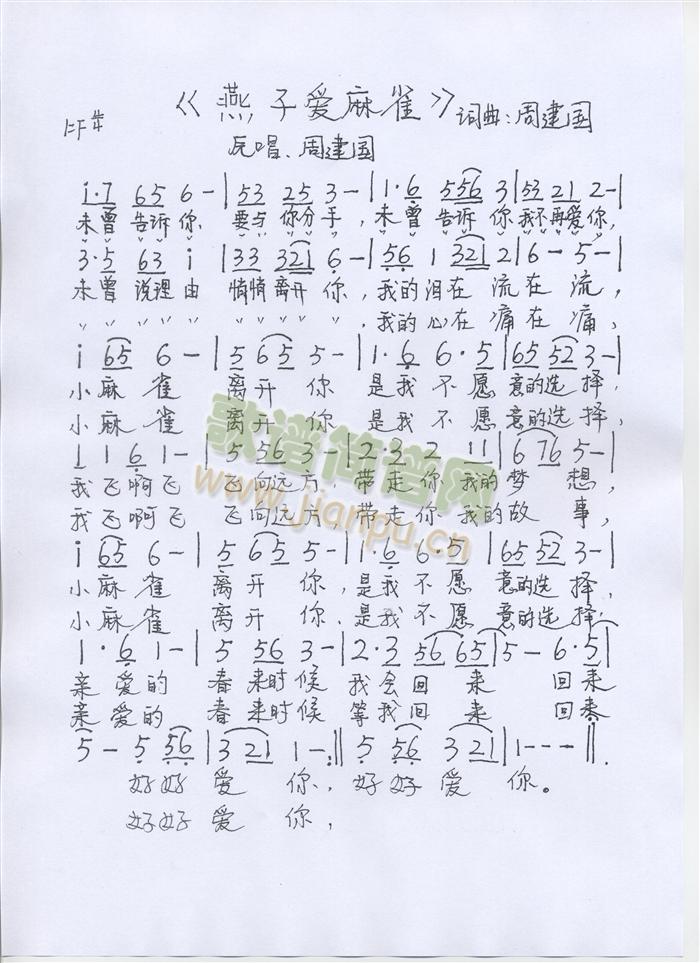 《燕子爱麻雀》 词曲:周建国
1=F 4/4
原唱、周建国
i·7 65 6-|53 25 3-|1·6 556 3|53 21 2-|
未曾告诉你 要与你分手，未曾告诉你我不再爱你，
〃 〃 〃 〃 〃 〃 〃 〃 〃 〃 〃 〃 〃 〃 〃 〃 〃 〃 〃 〃
3·5 63 i |33 321 6-|56 1 321 2|6- 5-|
未曾说理由 悄悄离开你，我的泪在流在流，
〃 〃 〃 〃 〃 〃 〃 〃 〃 〃 我的心在痛在痛，
i 65 6-|5 65 5-|1·6 6·5|65 52 3-|
小麻雀 离开你 是我不愿意的选择，
小麻雀 离开你 是我不愿意的选择，
1 1 6 1-|5 56 3-|2·3 2 11|6 76 5-|
我飞啊飞 飞向远方，带走你我的梦想，
我飞啊飞 飞向远方 带走你我的故事，
i 65 6-|5 65 5-|1·6 6·5|65 52 3-|
小麻雀 离开你，是我不愿意的选择，
小麻雀 离开你.是我不愿意的选择.
1·6 1-|5 56 3-|2·3 56 65|5- 6·5|
亲爱的 春来时候 我会回来 回来
亲爱的 春来时候 等我回来 回来
5- 5 56|3 21 1-:‖ 5 56 3 21|1---‖.
好好爱你，好好爱你。
好好爱你，
歌谱简谱网
www.jianpu.cn